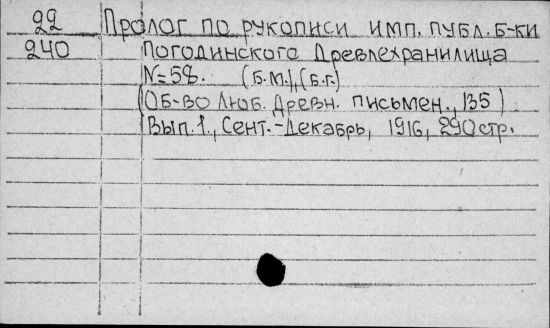 22 Пролог по рукописи Имп. Публ. Б-ки
240 Погодинского Древлехранилища
№=58. (Б.М.), (Б.Г.)
(Об-во Люб. Древн. Письмен., 135)
Вып. 1., Сент.-Декабрь, 1916, 290 стр.